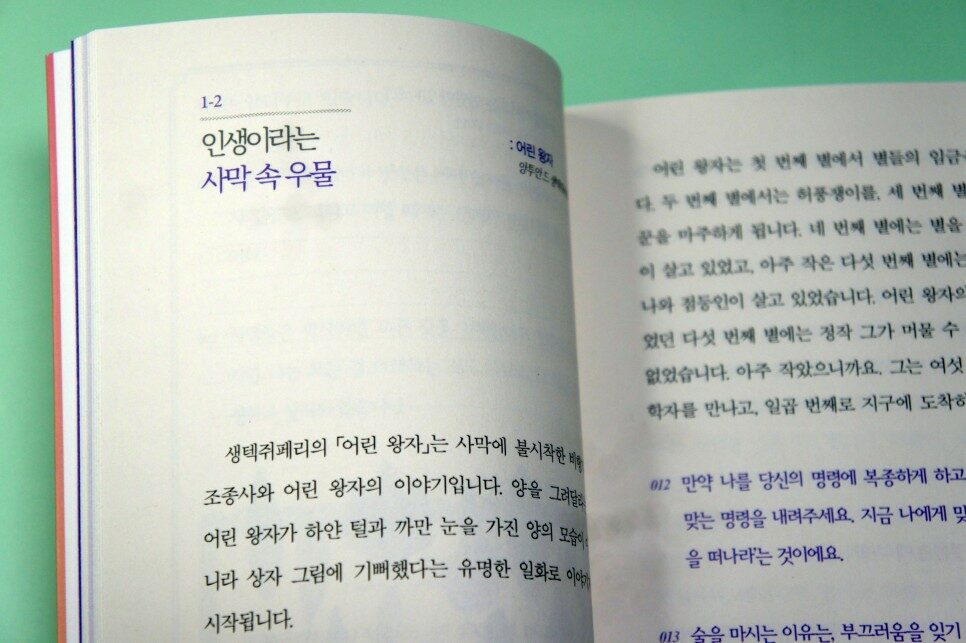 1-2
인생이라는
사막 속 우물
: 어린 왕자
앙투안 드
생텍쥐페리의 「어린 왕자」는 사막에 불시착한
조종사와 어린 왕자의 이야기입니다. 양을 그려달라
어린 왕자가 하얀 털과 까만 눈을 가진 양의 모습이
니라 상자 그림에 기뻐했다는 유명한 일화로 이야기
시작됩니다.
어린 왕자는 첫 번째 별에서 별들의 임금
다. 두 번째 별에서는 허풍쟁이를, 세 번째 별
꾼을 마주하게 됩니다. 네 번째 별에는 별을
이 살고 있었고, 아주 작은 다섯 번째 별에는
나와 점등인이 살고 있었습니다. 어린 왕자의
었던 다섯 번째 별에는 정작 그가 머물 수
없었습니다. 아주 작았으니까요. 그는 여섯
학자를 만나고, 일곱 번째로 지구에 도착하
012 만약 나를 당신의 명령에 복종하게 하고
맞는 명령을 내려주세요. 지금 나에게 맞
을 떠나라'는 것이에요.
013 술을 마시는 이유는, 부끄러움을 잊기